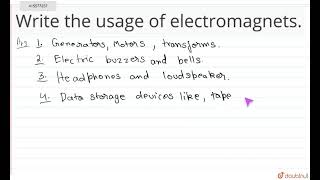 Write the usage of electromagnets.
Ans 1. Generators, Motors, transforms.
2. Electric buzzers and bells.
3. Headphones and loudspeaker.
4. Data storage devices like, tape
doubtnut